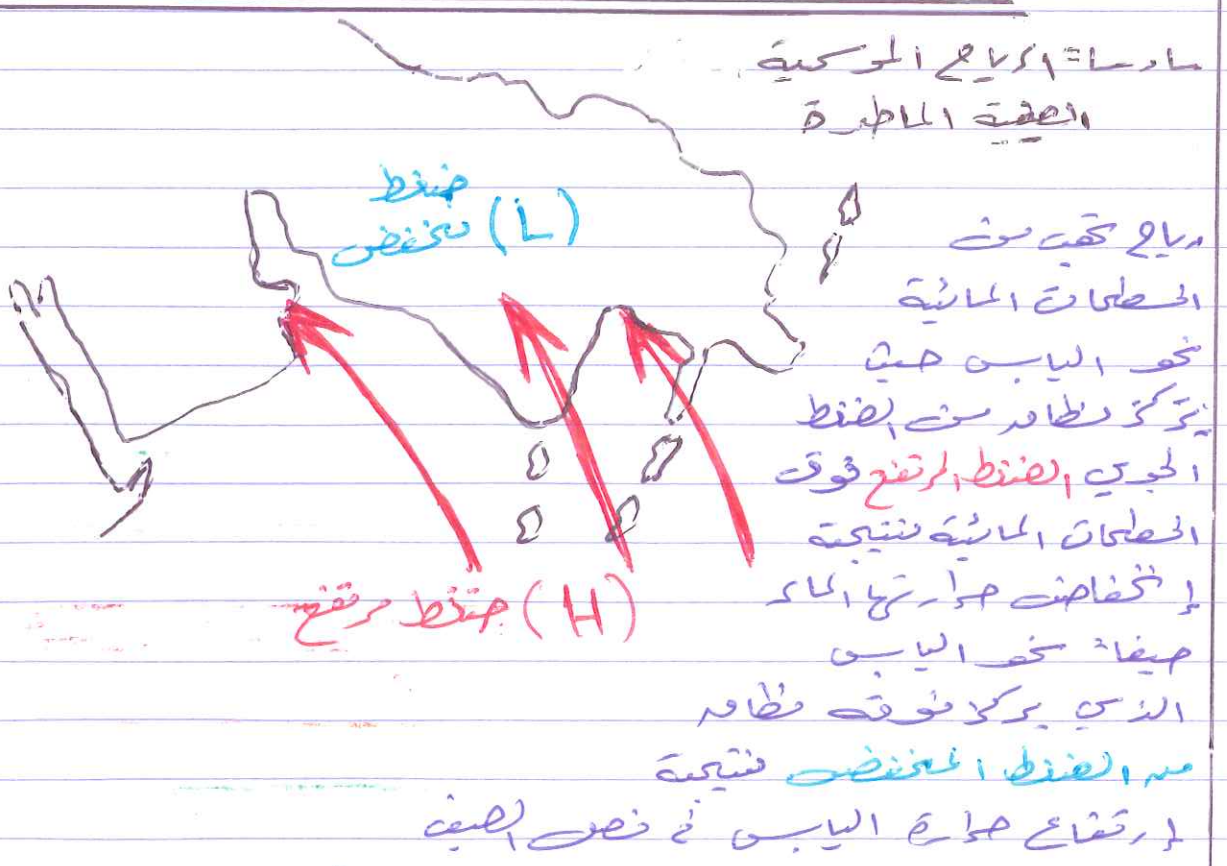 سادساً= الرياح الموسمية
الصيفية الماطرة
رياح تهب من
المسطحات المائية
نحو اليابس حيث
يتركز نظام من الضغط
الجوي الضغط المرتفع فوق
المسطحات المائية نتيجة
إنخفاض حرارتها الماء
صيفاً نحو اليابس
الذي يركز فوقه نظام
من الضغط المنخفض نتيجة
إرتفاع حرارة اليابس في فصل الصيف
ضغط
(L) منخفض
(H) ضغط مرتفع